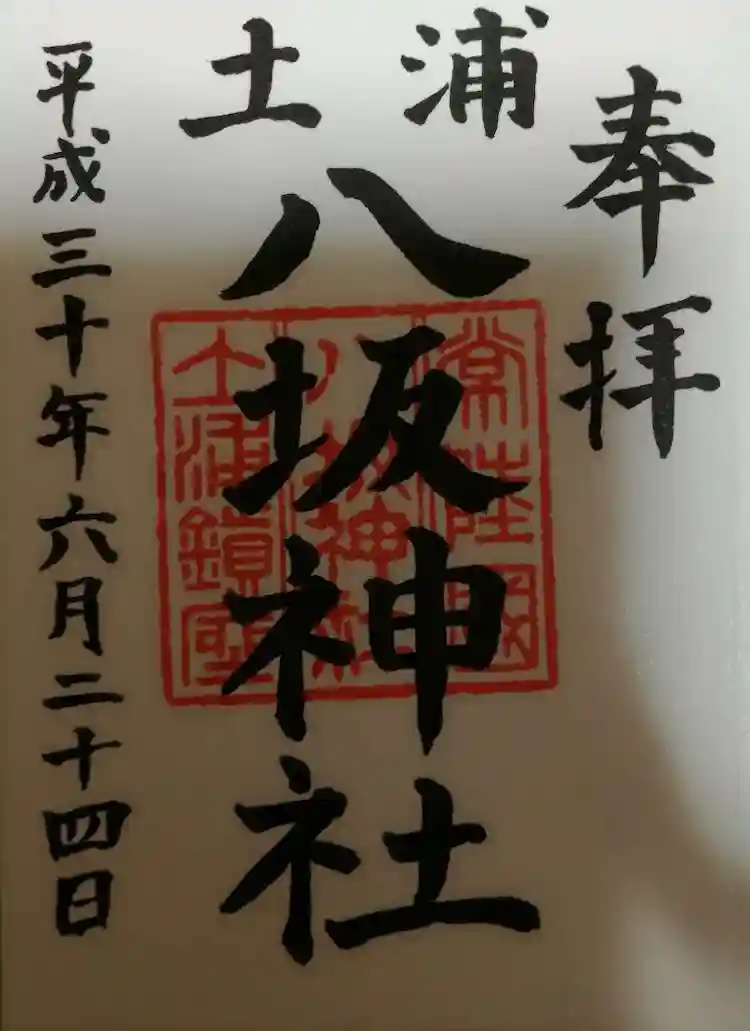 奉拝
土浦
八坂神社
平成三十年六月二十四日
常陸國
八坂神社
土浦鎮座